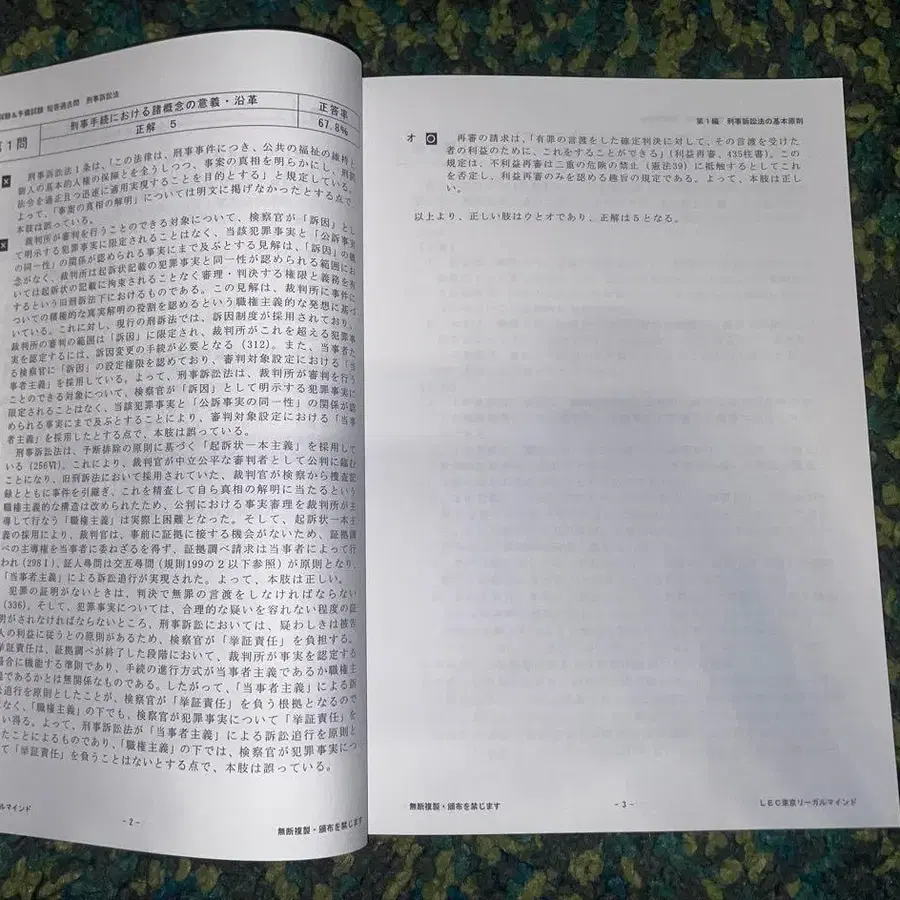 試験&予備試験 短答過去問 刑事訴訟法
第1問
刑事手続における諸概念の意義・沿革
正解 5
正答率
67.8%
刑事訴訟法1条は、「この法律は、刑事事件につき、公共の福祉の維持と
個人の基本的人権の保障とを全うしつつ、事案の真相を明らかにし、刑罰
法令を適正且つ迅速に適用実現することを目的とする」と規定している。
よって、「事案の真相の解明」については明文に掲げなかったとする点で、
本肢は誤っている。
裁判所が審判を行うことのできる対象について、検察官が「訴因」とし
て明示する犯罪事実に限定されることはなく、当該犯罪事実と「公訴事実
の同一性」の関係が認められる事実にまで及ぶとする見解は、「訴因」の概
念がなく、裁判所は起訴状記載の犯罪事実と同一性が認められる範囲にお
いては起訴状の記載に拘束されることなく審理・判決する権限と義務を有
するという旧刑訴法下におけるものである。この見解は、裁判所に事件に
ついての積極的な真実解明の役割を認めるという職権主義的な発想に基づ
いている。これに対し、現行の刑訴法では、訴因制度が採用されており、
裁判所の審判の範囲は「訴因」に限定され、裁判所がこれを超える犯罪事
実を認定するには、訴因変更の手続が必要となる(312)。また、当事者た
る検察官に「訴因」の設定権限を認めており、審判対象設定における「当
事者主義」を採用している。よって、刑事訴訟法は、裁判所が審判を行う
ことのできる対象について、検察官が「訴因」として明示する犯罪事実に
限定されることはなく、当該犯罪事実と「公訴事実の同一性」の関係が認
められる事実にまで及ぶとすることにより、審判対象設定における「当事
者主義」を採用したとする点で、本肢は誤っている。
刑事訴訟法は、予断排除の原則に基づく「起訴状一本主義」を採用して
いる(256Ⅵ)。これにより、裁判官が中立公平な審判者として公判に臨む
ことになり、旧刑訴法において採用されていた、裁判官が検察から捜査記
録とともに事件を引継ぎ、これを精査して自ら真相の解明に当たるという
職権主義的な構造は改められたため、公判における事実審理を裁判所が主
導して行なう「職権主義」は実際上困難となった。そして、起訴状一本主
義の採用により、裁判官は、事前に証拠に接する機会がないため、証拠調
べの主導権を当事者に委ねざるを得ず、証拠調べ請求は当事者によって行
われ(298Ⅰ)、証人尋問は交互尋問(規則199の2以下参照)が原則となり、
「当事者主義」による訴訟追行が実現された。よって、本肢は正しい。
犯罪の証明がないときは、判決で無罪の言渡をしなければならない
(336)。そして、犯罪事実については、合理的な疑いを容れない程度の証
明がされなければならないところ、刑事訴訟においては、疑わしきは被告
人の利益に従うとの原則があるため、検察官が「挙証責任」を負担する。
挙証責任は、証拠調べが終了した段階において、裁判所が事実を認定する
場合に機能する準則であり、手続の進行方式が当事者主義であるか職権主
義であるかとは無関係なものである。したがって、「当事者主義」による訴
訟追行を原則としたことが、検察官が「挙証責任」を負う根拠となるので
はなく、「職権主義」の下でも、検察官が犯罪事実について「挙証責任」を
負い得る。よって、刑事訴訟法が「当事者主義」による訴訟追行を原則と
したことによるものであり、「職権主義」の下では、検察官が犯罪事実につ
いて「挙証責任」を負うことはないとする点で、本肢は誤っている。
ルマインド
-2-
無断複製・頒布を禁じます
第1編 刑事訴訟法の基本原則
オ 〇 再審の請求は、「有罪の言渡をした確定判決に対して、その言渡を受けた
者の利益のために、これをすることができる」(利益再審、435柱書)。この
規定は、不利益再審は二重の危険の禁止(憲法39)に抵触するとしてこれ
を否定し、利益再審のみを認める趣旨の規定である。よって、本肢は正し
い。
以上より、正しい肢はウとオであり、正解は5となる。
無断複製・頒布を禁じます
-3-
LEC東京リーガルマインド